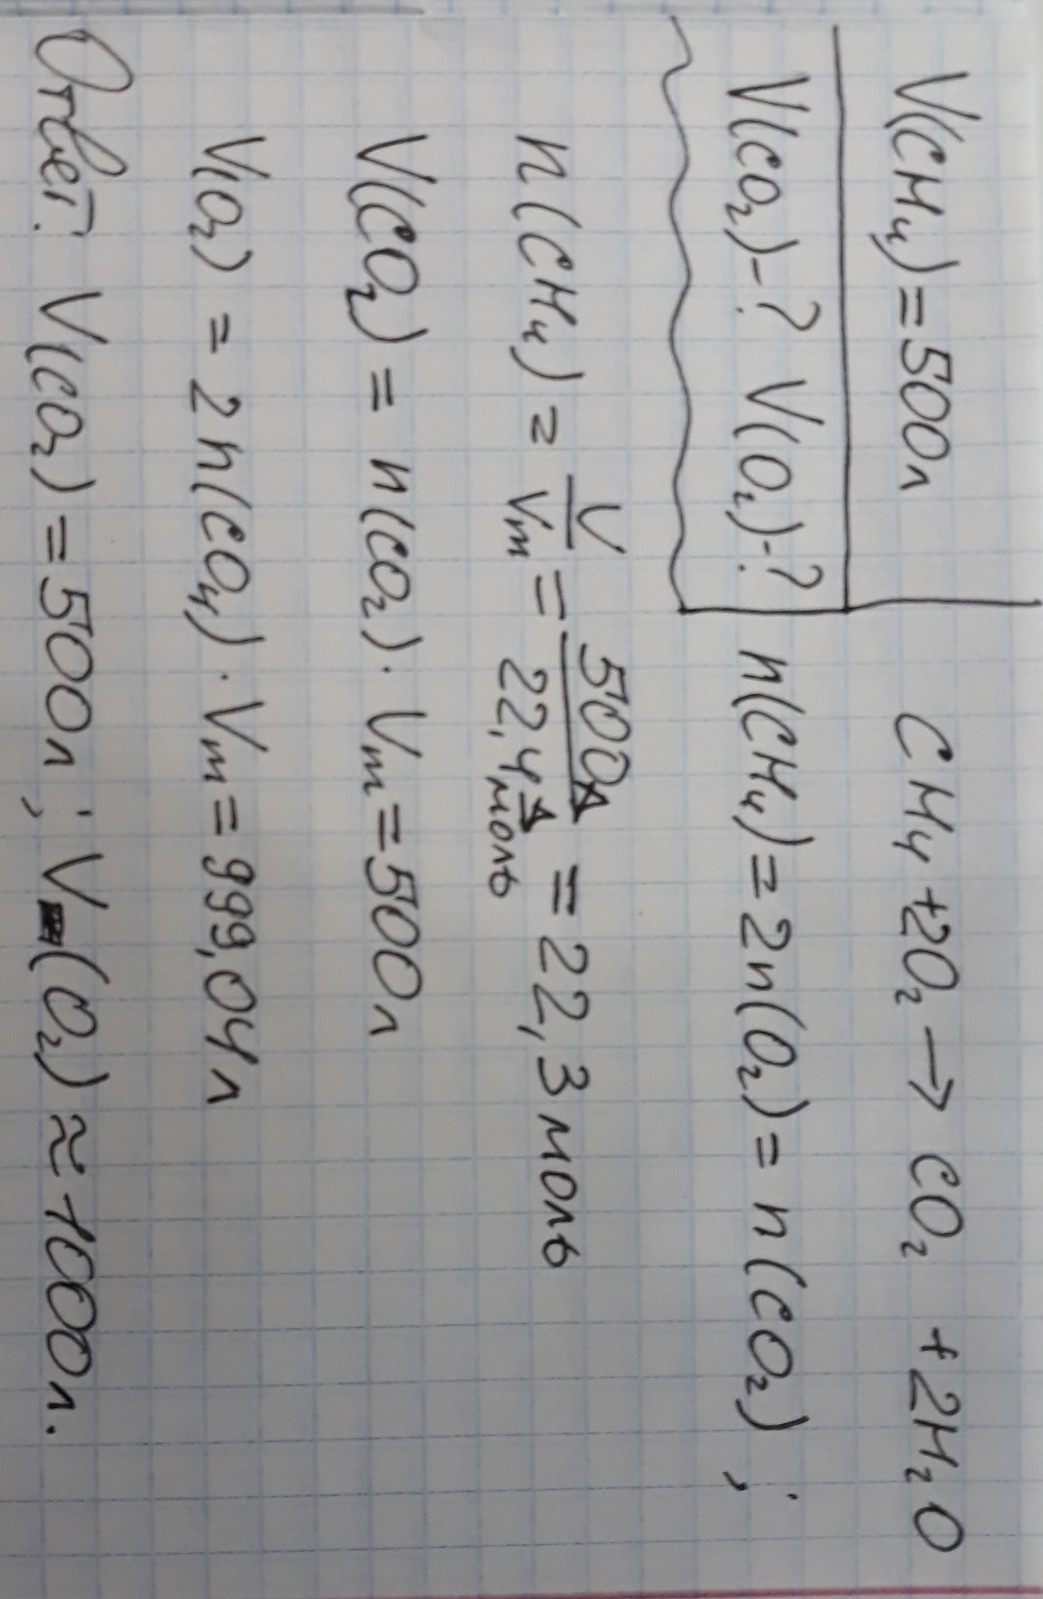 V(CH₄)=500л CH₄+2O₂→CO₂+2H₂O
V(CO₂)-? V(O₂)-? n(CH₄)=2n(O₂)=n(CO₂);
n(CH₄)=V/Vm=500л/22,4л/моль=22,3моль
V(CO₂)=n(CO₂)·Vm=500л
V(O₂)=2n(CO₄)·Vm=999,04л
Ответ: V(CO₂)=500л; V(O₂)≈1000л.